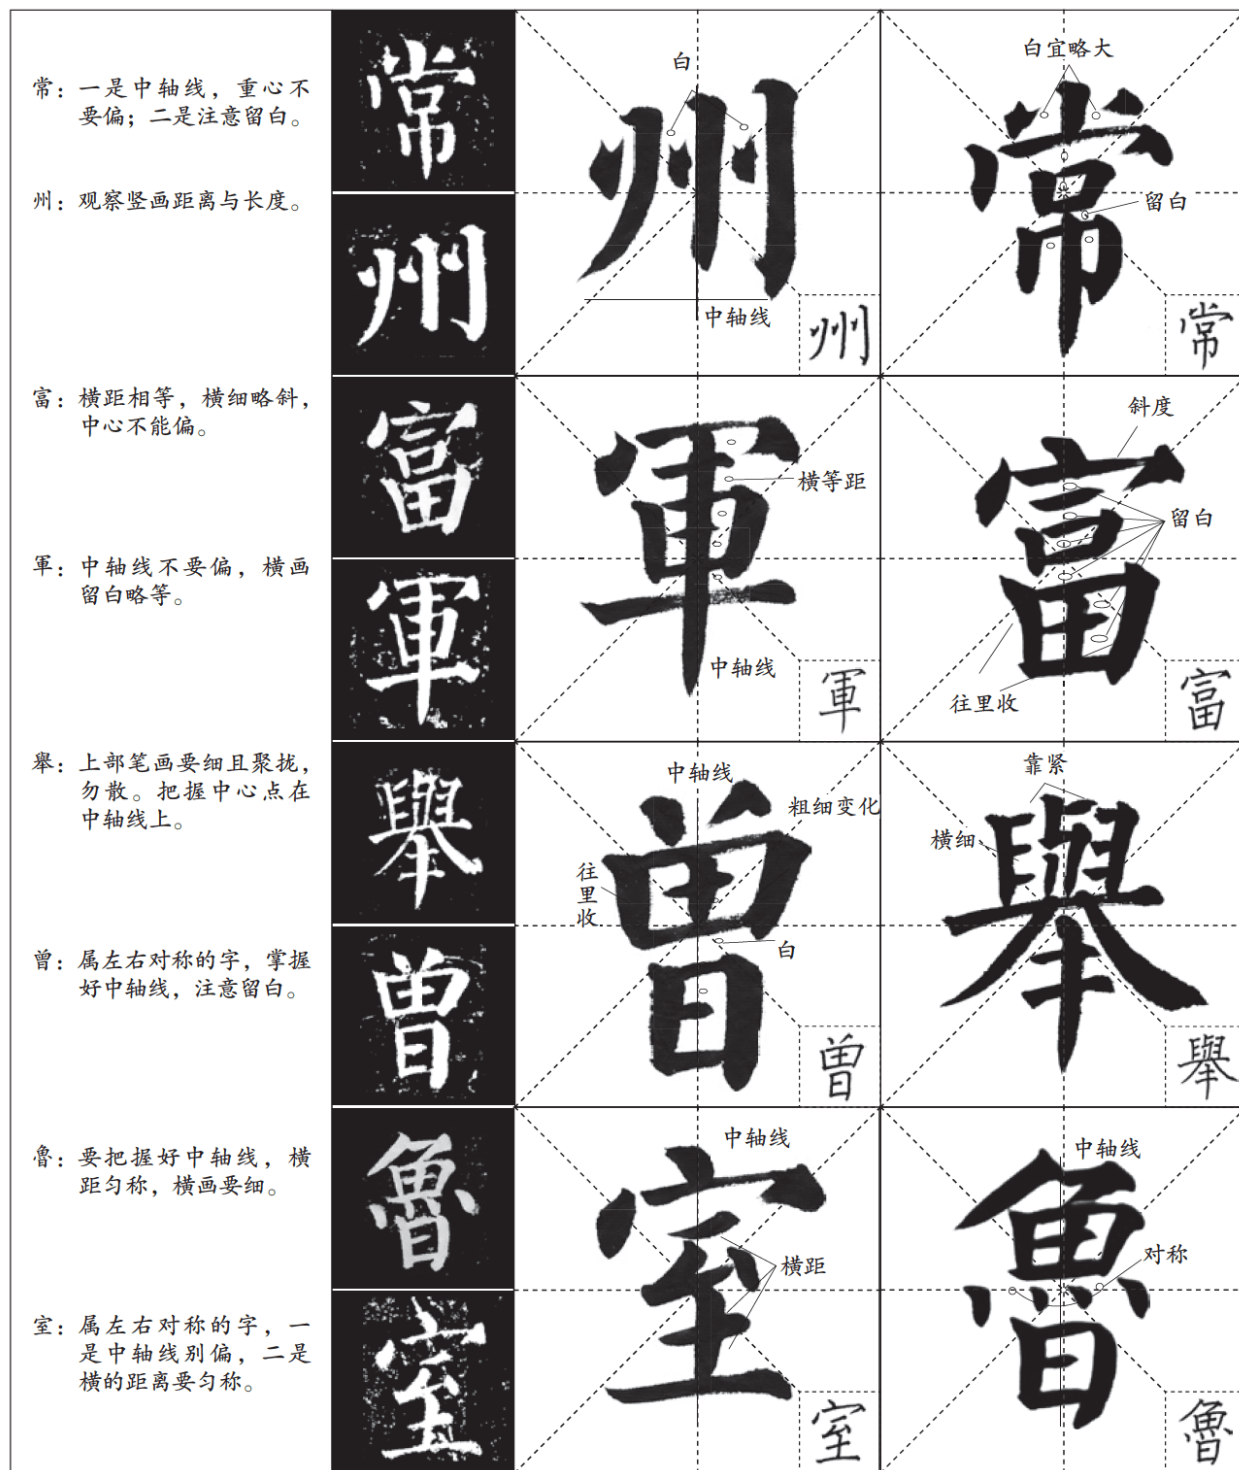 常：一是中轴线，重心不
要偏；二是注意留白。
州：观察竖画距离与长度。
富：横距相等，横细略斜，
中心不能偏。
軍：中轴线不要偏，横画
留白略等。
舉：上部笔画要细且聚拢，
勿散。把握中心点在
中轴线上。
曾：属左右对称的字，掌握
好中轴线，注意留白。
魯：要把握好中轴线，横
距匀称，横画要细。
室：属左右对称的字，一
是中轴线别偏，二是
横的距离要匀称。
常
州
富
軍
舉
曾
魯
室
白
州
中轴线
州
白宜略大
常
留白
常
軍
横等距
中轴线
軍
斜度
富
留白
往里收
富
中轴线
粗细变化
曾
往里收
白
曾
靠紧
横细
舉
舉
中轴线
室
横距
室
中轴线
魯
对称
魯